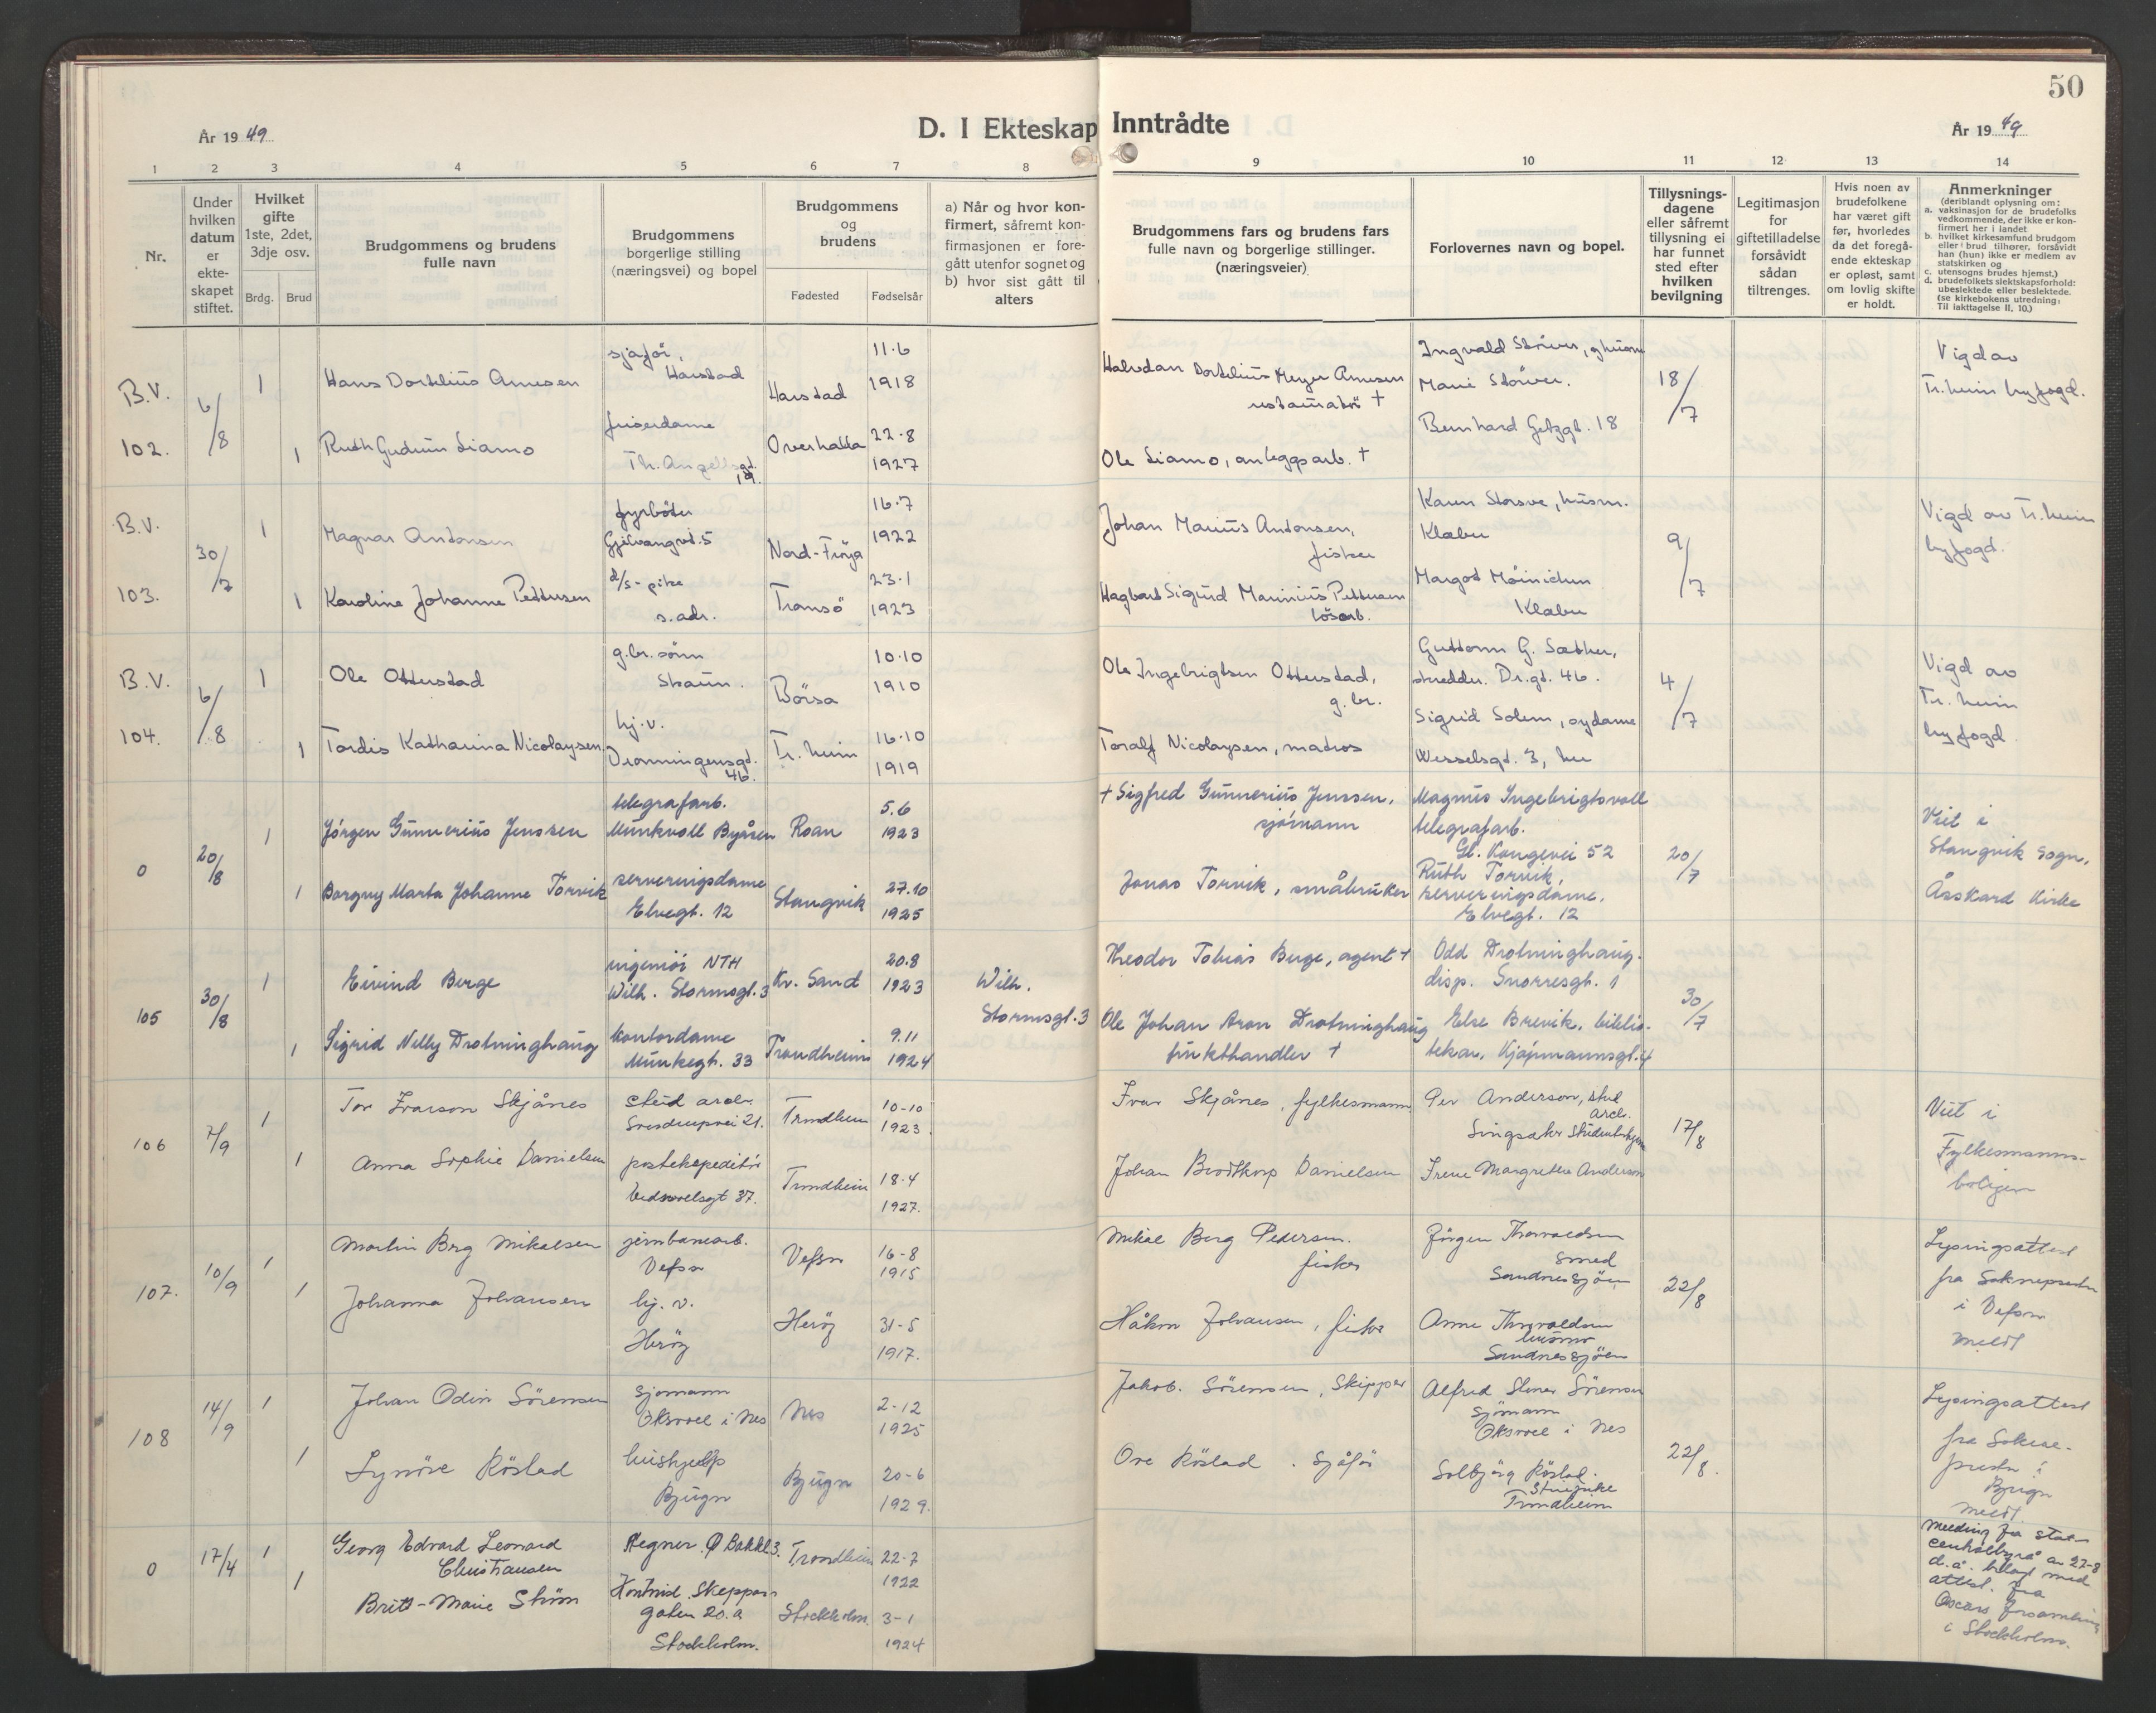 50
År 1949
D. I Ekteskap Inntrådte
År 1949
1 2 3 4 5 6 7 8 9 10 11 12 13 14
Nr.
Under
hvilken
datum
er
ekte-
skapet
stiftet.
Hvilket
gifte
1ste, 2det,
3dje osv.
Brdg. Brud
Brudgommens og brudens
fulle navn
Brudgommens
borgerlige stilling
(næringsvei) og bopel
Brudgommens
og
brudens
Fødested Fødselsår
a) Når og hvor kon-
firmert, såfremt kon-
firmasjonen er fore-
gått utenfor sognet og
b) hvor sist gått til
alters
Brudgommens fars og brudens fars
fulle navn og borgerlige stillinger.
(næringsveier)
Forlovernes navn og bopel.
Tillysnings-
dagene
eller såfremt
tillysning ei
har funnet
sted efter
hvilken
bevilgning
Legitimasjon
for
giftetilladelse
forsåvidt
sådan
tiltrenges.
Hvis noen av
brudefolkene
har været gift
før, hvorledes
da det foregå-
ende ekteskap
er opløst, samt
om lovlig skifte
er holdt.
Anmerkninger
(deriblandt oplysning om:
a. vaksinasjon for de brudefolks
vedkommende, der ikke er kon-
firmert her i landet
b. hvilket kirkesamfund brudgom
eller brud tilhører, forsåvidt
han (hun) ikke er medlem av
statskirken og
c. utensogns brudes hjemst.)
d. brudefolkets slektskapsforhold:
ubeslektede eller beslektede.
(se kirkebokens utredning:
Til iakttagelse II, 10.)
B.V.
102.
6/8
1
Hans Dortelius Arnesen
sjåför,
Harstad
Harstad
11.6
1918
Halvdan Dortelius Meyer Arnesen
restauratör †
Ingvald Störver,
Marie Störver.
Bernhard Getzgt. 18
18/7
Vigd av
Tr.heim byfogd.
1
Ruth Gudrun Liamo
friserdame
Th. Angellsgt.
19.
Overhalla
22.8
1927
Ole Liamo, anleggsarb. †
B.V.
103.
30/7
1
Magnar Antonsen
fyrböter
Gjilvangvt. 5
Nord-Fröya
16.7
1922
Johan Marius Antonsen,
fisker
Karen Storsve, husm.
Klæbu
9/7
Vigd av Tr.heim
byfogd.
1
Karoline Johanne Pettersen
d/s-pike
s. adr.
Tromsö
23.1
1923
Hagbart Sigurd Marinius Pettersen
lösarb.
Margot Möinichen
Klæbu
B.V.
104.
6/8
1
Ole Otterstad
g.br. sönn
Skaun.
Börsa
10.10
1910
Ole Ingebrigtsen Otterstad,
g.br.
Guttorm G. Sæther,
skredder. Dr.gt. 46.
4/7
Vigd av
Tr.heim
byfogd
1
Tordis Katharina Nicolaysen
hj.v.
Dronningensgt.
46.
Tr.heim
16.10
1919
Toralf Nicolaysen, matros
Sigrid Solem, sydame
Wesselsgt. 3, her
0
20/8
1
Jörgen Gunnerius Jenssen
telegrafarb.
Munkvoll Byåsen
Roan
5.6
1923
† Sigfred Gunnerius Jenssen,
sjömann
Magnus Ingebrigtsvoll
telegrafarb.
Gl. Kongevei 52
20/7
Viet i
Stangvik Sogn,
Åsskard Kirke
1
Borgny Marta Johanne Torvik
serveringsdame
Elvegt. 12
Stangvik
27.10
1925
Jonas Torvik, småbruker
Ruth Torvik,
serveringsdame,
Elvegt. 12
105
30/8
1
Eivind Berge
ingeniör NTH
Wilh. Stormsgt. 3
Kr. Sand
20.8
1923
Wilh.
Stormsgt. 3
Theodor Tobias Berge, agent †
Odd Drotninghaug.
disp. Snorresgt. 1
30/7
1
Sigrid Nelly Drotninghaug
kontordame
Munkegt. 33
Trondheim
9.11
1924
Ole Johan Aron Drotninghaug
frukthandler †
Else Brevik, biblio-
tekar, Kjöpmannsgt. 4
106
7/9
1
Tor Ivarson Skjånes
stud arch.
Sverdrupsvei 21.
Trondheim
10-10
1923.
Ivar Skjånes, fylkesmann
Per Anderson, stud
arch.
Singsaker Studenthjem
17/8
Viet i
Fylkesmanns-
boligen
1
Anna Sophie Danielsen
postekspeditör
Eidsvolsgt 37.
Trondheim
18.4
1927.
Johan Brodtkorp Danielsen
Irene Margrethe Anderson
107.
10/9
1
Martin Berg Mikalsen
jernbanearb.
Vefsn
Vefsn
16-8
1915
Mikal Berg Pedersen.
fisker
Jörgen Thorvaldsen
smed
Sandnessjöen
22/8
Lysingsattest
fra Soknepresten
i Vefsn
meldt
1
Johanna Johansen
hj. v.
Heröy
Heröy
31-5
1917.
Håkon Johansen, fisker
Anne Thorvaldsen
husmor
Sandnessjöen
108
14/9
1
Johan Odin Sörensen
sjömann
Oksvoll i Nes
Nes
2-12
1925
Jakob. Sörensen, Skipper
Alfred Steiner Sörensen
sjömann
Oksvoll i Nes
22/8.
Lysingsattest
fra Sokne-
presten i
Bjugn
meldt.
1
Synöve Röstad
hushjelp
Bjugn
Bjugn
20-6
1929.
Ove Röstad. Sjåför
Solbjörg Röstad.
Trondheim
0
17/4
1
Georg Edvard Leonard
Christiansen
Tegner. Ø Bakkl 3.
Trondheim
22-7
1922
Melding fra stat.
centralbyrå av 22-8
d.å. bilagt med
attest. fra
Oscars forsamling
i Stockholm.
1
Britt-Marie Ström
Skeppar-
gaten 20. a
Stockholm.
Stockholm.
3-1
1924